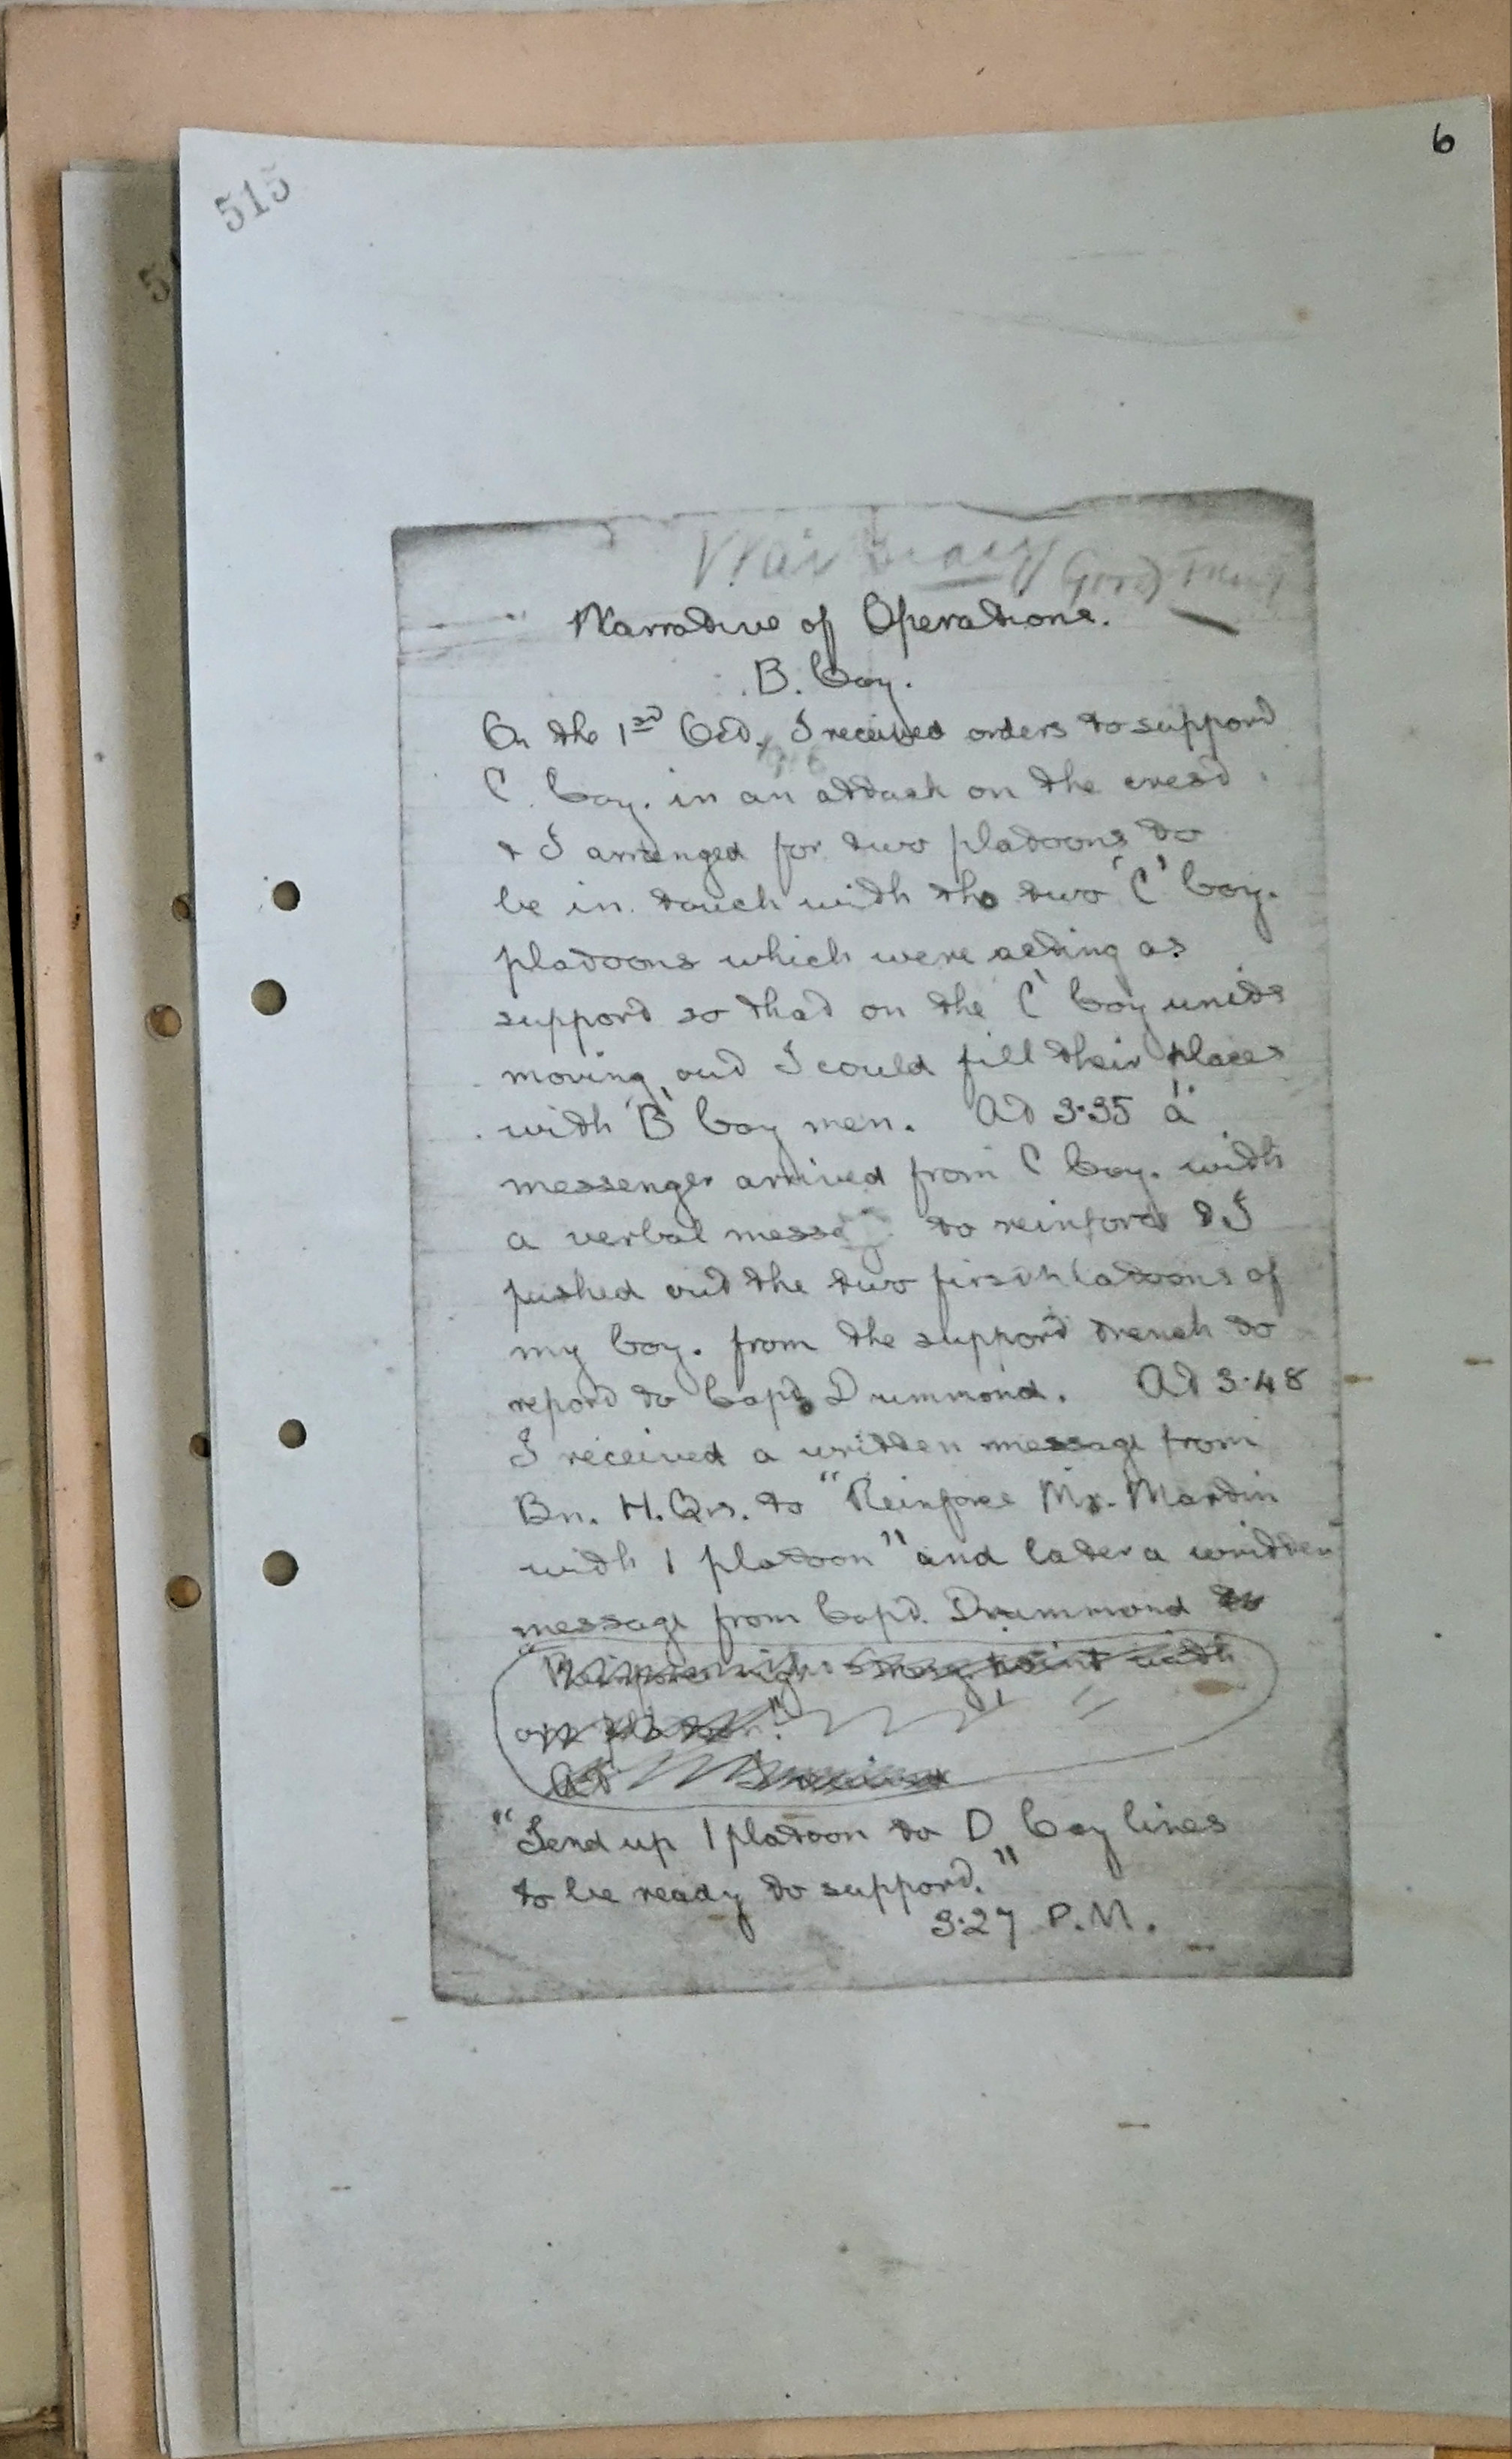 6
515
War Diary
Narrative of Operations.
B. Coy.
On the 1st Oct. I received orders to support
1916
C. Coy. in an attack on the crest
& I arranged for two platoons to
be in touch with the two 'C' Coy.
platoons which were acting as
support so that on the 'C' Coy units
moving out I could fill their places
with 'B' Coy men. At 3.35 a
messenger arrived from C Coy. with
a verbal message to reinforce & I
pushed out the two first platoons of
my Coy. from the support trench to
report to Capt. Drummond. At 3.48
I received a written message from
Bn. H.Qrs. to "Reinforce Mr. Martin
with 1 platoon" and later a written
message from Capt. Drummond to
"Reinforce with
platoon."
At I received
"Send up 1 platoon to D Coy lines
to be ready to support."
3.27 P.M.